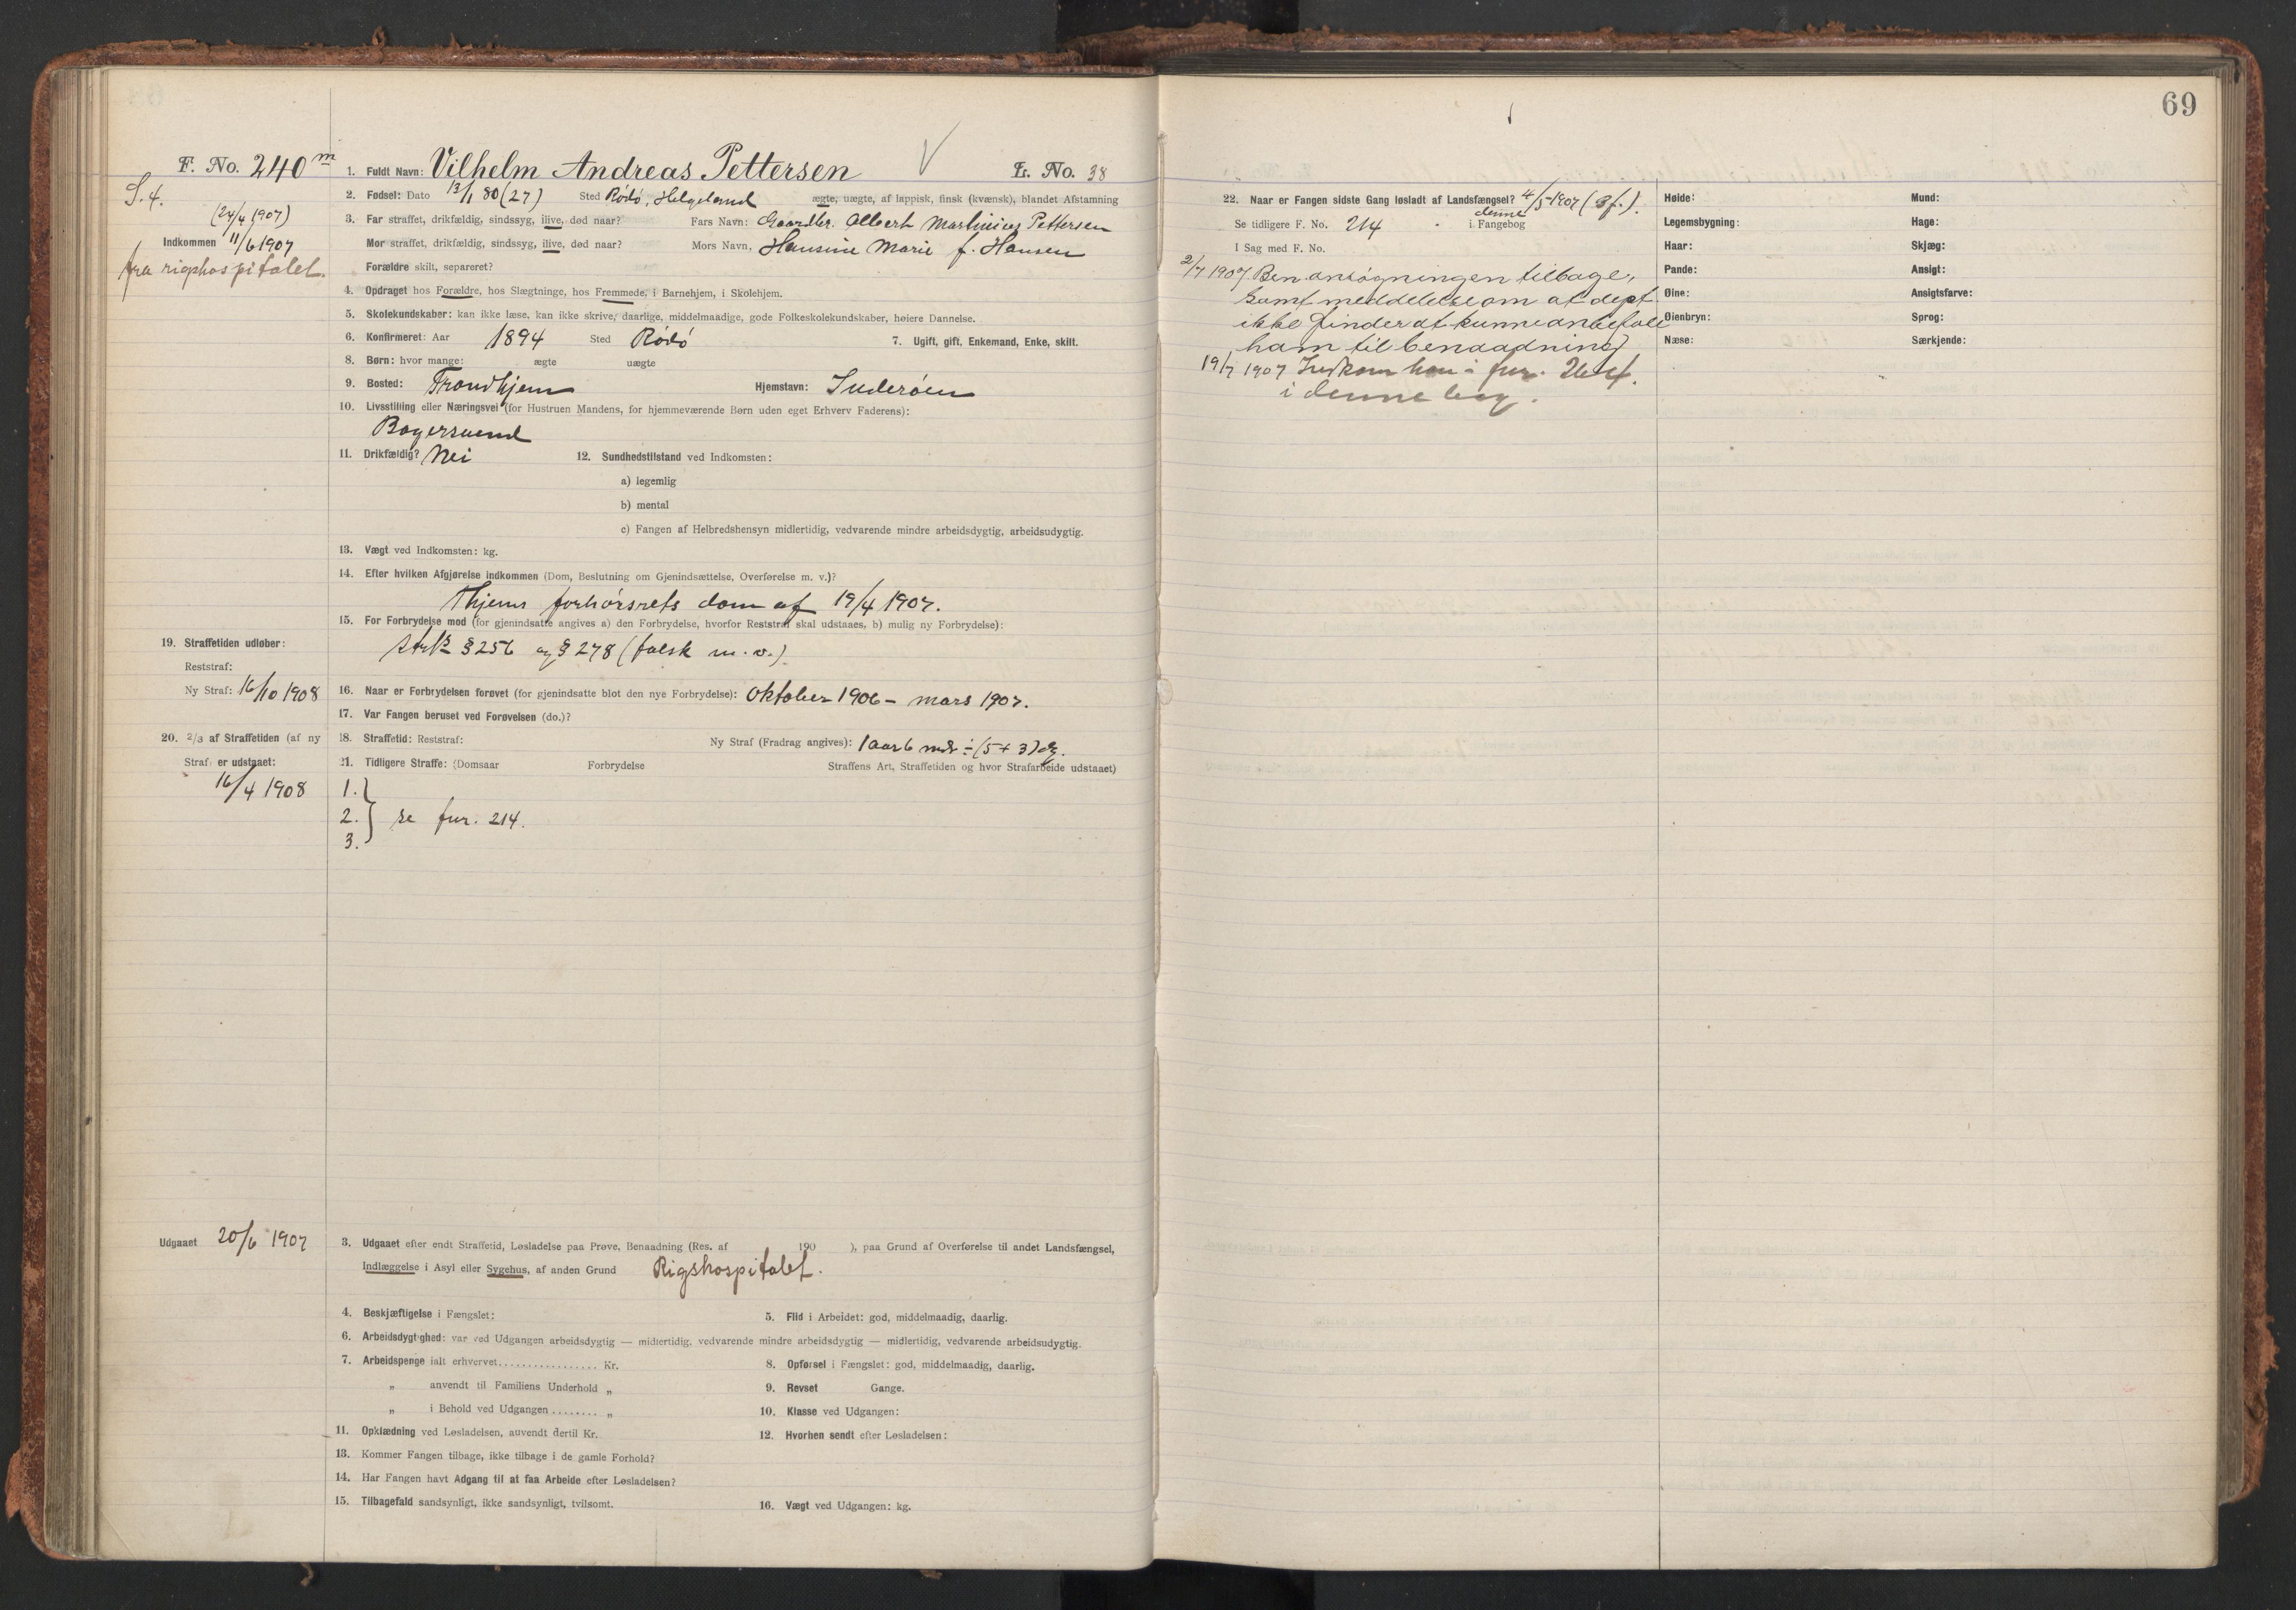 69
F. No. 240 m
1. Fuldt Navn: Vilhelm Andreas Pettersen V L. No. 38
S. 4.
2. Fødsel: Dato 13/1 80 (27) Sted Rödö, Helgeland ægte, uægte, af lappisk, finsk (kvænsk), blandet Afstamning
(24/4 1907)
3. Far straffet, drikfældig, sindssyg, ilive, død naar? Fars Navn: Gaardbr. Albert Martinius Pettersen
Indkommen 11/6 1907
Mor straffet, drikfældig, sindssyg, ilive, død naar? Mors Navn, Hansine Marie f. Hansen
fra rigshospitalet.
Forældre skilt, separeret?
4. Opdraget hos Forældre, hos Slægtninge, hos Fremmede, i Barnehjem, i Skolehjem.
5. Skolekundskaber: kan ikke læse, kan ikke skrive, daarlige, middelmaadige, gode Folkeskolekundskaber, høiere Dannelse.
6. Konfirmeret: Aar 1894 Sted Rödö 7. Ugift, gift, Enkemand, Enke, skilt.
8. Børn: hvor mange: ægte uægte
9. Bosted: Trondhjem Hjemstavn: Inderöen
10. Livsstilling eller Næringsvei (for Hustruen Mandens, for hjemmeværende Børn uden eget Erhverv Faderens):
Bagersvend
11. Drikfældig? Nei 12. Sundhedstilstand ved Indkomsten:
a) legemlig
b) mental
c) Fangen af Helbredshensyn midlertidig, vedvarende mindre arbeidsdygtig, arbeidsudygtig.
13. Vægt ved Indkomsten: kg.
14. Efter hvilken Afgjørelse indkommen (Dom, Beslutning om Gjenindsættelse, Overførelse m. v.)?
Thjems forhörsrets dom af 19/4 1907.
15. For Forbrydelse mod (for gjenindsatte angives a) den Forbrydelse, hvorfor Reststraf skal udstaaes, b) mulig ny Forbrydelse):
§ 256 og § 278 (falsk m. v.).
19. Straffetiden udløber:
Reststraf:
Ny Straf: 16/10 1908
16. Naar er Forbrydelsen forøvet (for gjenindsatte blot den nye Forbrydelse): Oktober 1906 - mars 1907.
17. Var Fangen beruset ved Forøvelsen (do.)?
20. 2/3 af Straffetiden (af ny
Straf) er udstaaet:
16/4 1908
18. Straffetid: Reststraf: Ny Straf (Fradrag angives): 1 aar 6 mdr ÷ (5 + 3) dg.
21. Tidligere Straffe: (Domsaar Forbrydelse Straffens Art, Straffetiden og hvor Strafarbeide udstaaet)
1.
2. se fnr. 214.
3.
Udgaaet 20/6 1907
3. Udgaaet efter endt Straffetid, Løsladelse paa Prøve, Benaadning (Res. af 190 ), paa Grund af Overførelse til andet Landsfængsel,
Indlæggelse i Asyl eller Sygehus, af anden Grund Rigshospitalet.
4. Beskjæftigelse i Fængslet: 5. Flid i Arbeidet: god, middelmaadig, daarlig.
6. Arbeidsdygtighed: var ved Udgangen arbeidsdygtig — midlertidig, vedvarende mindre arbeidsdygtig — midlertidig, vedvarende arbeidsudygtig.
7. Arbeidspenge ialt erhvervet................ Kr. 8. Opførsel i Fængslet: god, middelmaadig, daarlig.
„ anvendt til Familiens Underhold „ 9. Revset Gange.
„ i Behold ved Udgangen........ „ 10. Klasse ved Udgangen:
11. Opklædning ved Løsladelsen, anvendt dertil Kr. 12. Hvorhen sendt efter Løsladelsen:
13. Kommer Fangen tilbage, ikke tilbage i de gamle Forhold?
14. Har Fangen havt Adgang til at faa Arbeide efter Løsladelsen?
15. Tilbagefald sandsynligt, ikke sandsynligt, tvilsomt. 16. Vægt ved Udgangen: kg.
22. Naar er Fangen sidste Gang løsladt af Landsfængsel? 4/5 1907 (Bf.).
Se tidligere F. No. 214 i denne Fangebog
I Sag med F. No.
2/7 1907 Ben. ansögningen tilbage,
samt meddelelse om at dept.
ikke finder at kunne anbefale
ham til benaadning
19/7 1907 Indkom han i fnr.
i denne bog.
Høide: Mund:
Legemsbygning: Hage:
Haar: Skjæg:
Pande: Ansigt:
Øine: Ansigtsfarve:
Øienbryn: Sprog:
Næse: Særkjende: